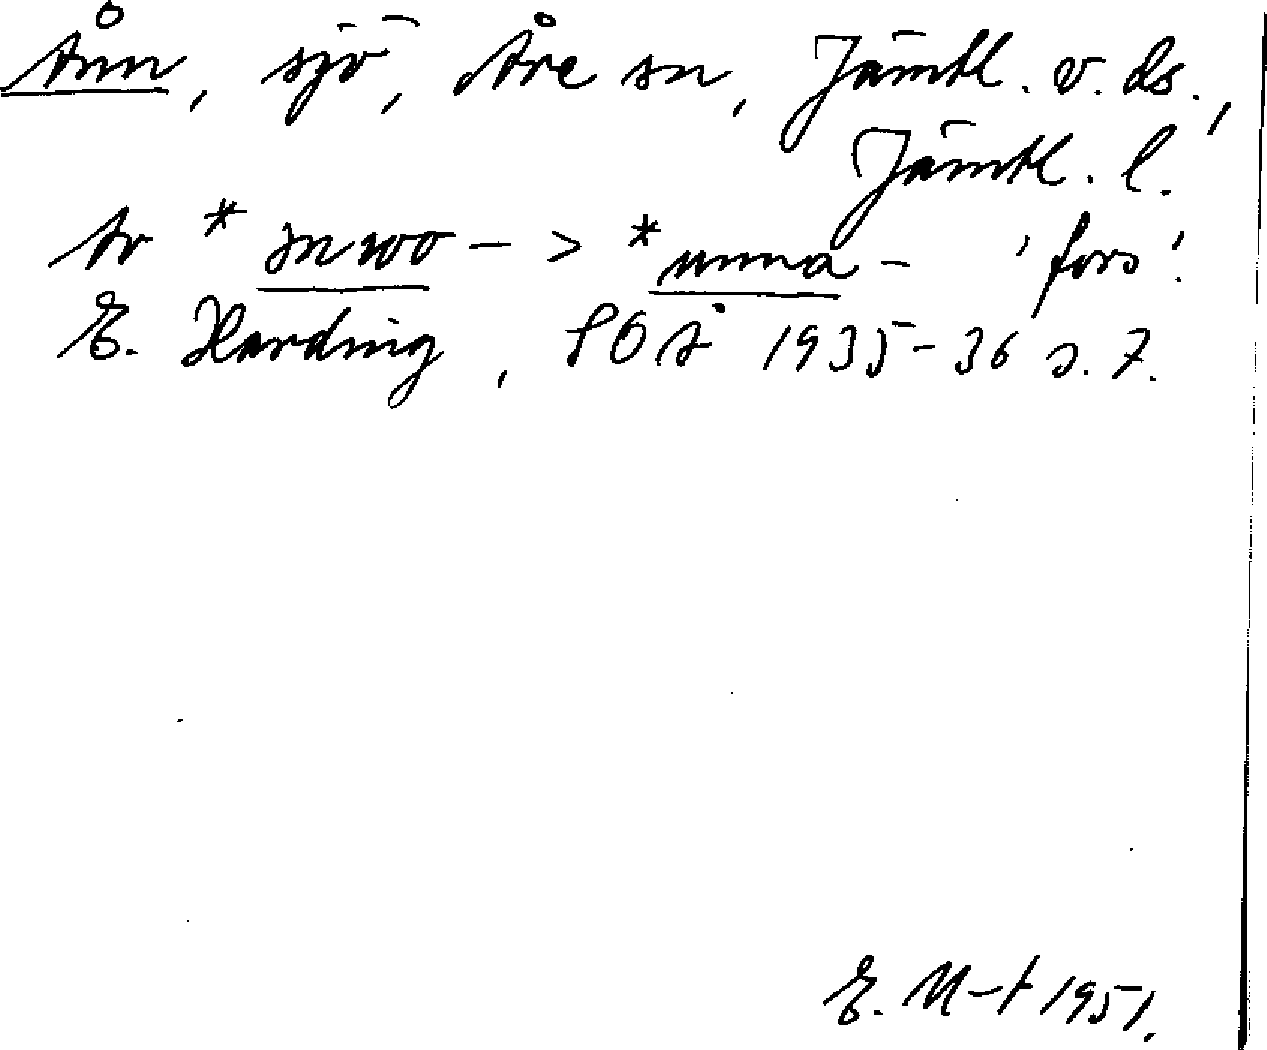 Ånn, sjö, Åre sn, Jämtl. v. ds.,
Jämtl. l.
Av * znwō- > * unna- 'fors'.
E. Harding, SOÅ 1935-36 s. 7.
E. M-t 1951.